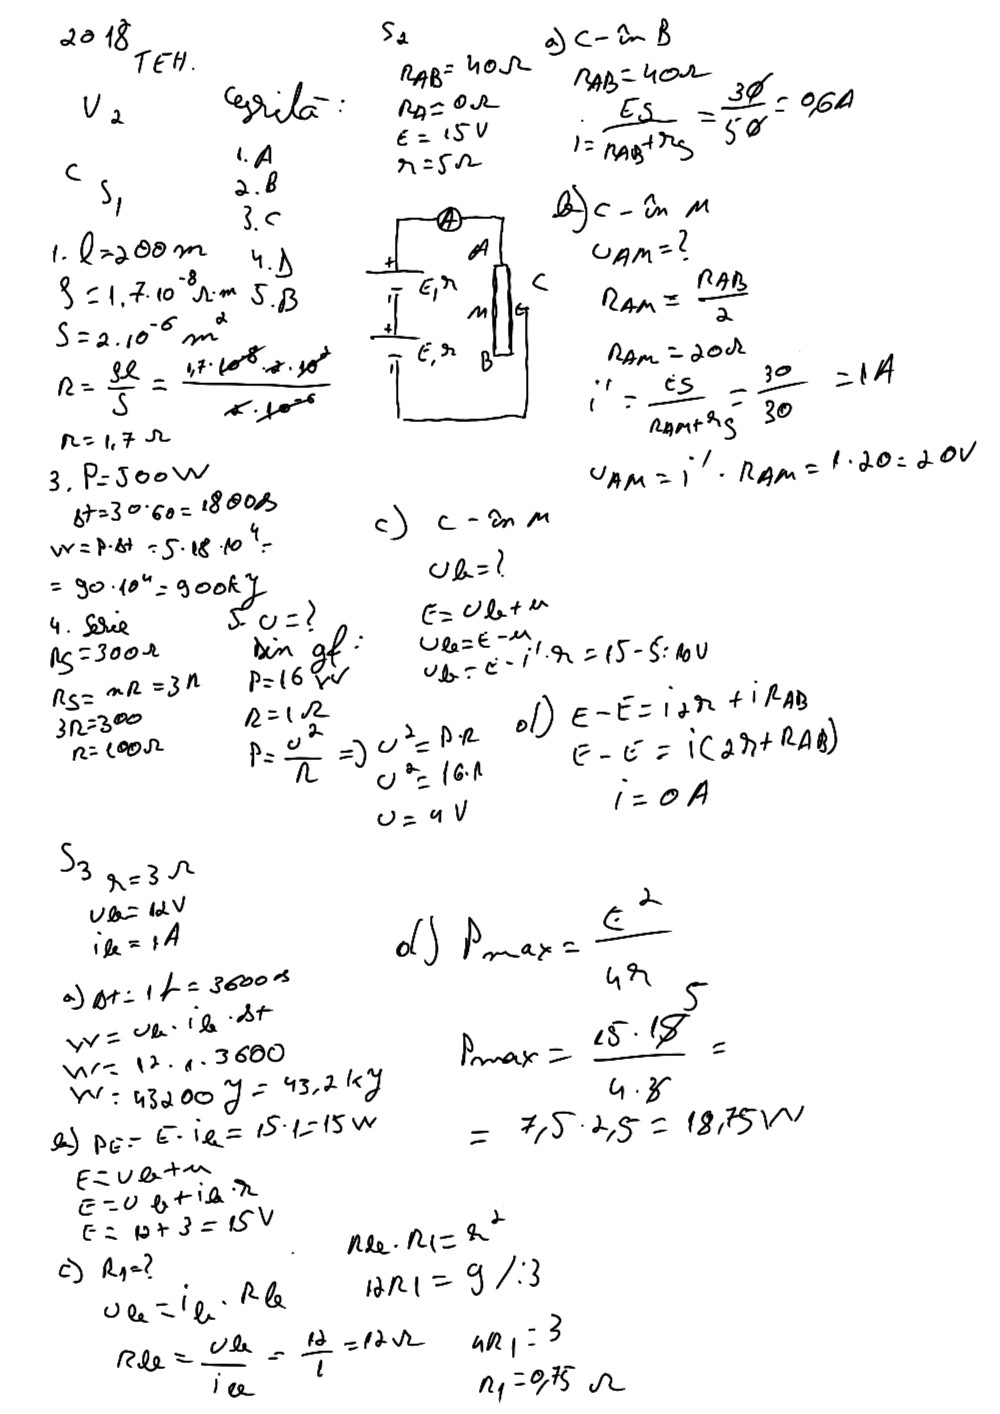 2018
TEH.
V2
C
S1
Cerită:
1. A
2. B
3. C
4. D
5. B
1. l=200m
ρ=1,7·10^-8 Ω·m
S=2·10^-6 m²
R = ρl/S = 1,7·10^-8·2·10²/2·10^-6
R=1,7 Ω
3. P=500W
Δt=30·60=1800s
W=P·Δt=5·18·10⁴=
=90·10⁴=900kJ
4. Serie
RS=300Ω
RS=nR=3R
3R=300
R=100Ω
5. U=?
Din gf:
P=16 W
R=1Ω
P=U²/R => U²=P·R
U²=16·1
U=4V
S2
RAB=40Ω
RA=0Ω
E=15V
r=5Ω
A
A
+
E,r
-
C
M
+
E,r
-
B
a) C-în B
RAB=40Ω
i=ES/RAB+rS=30/50=0,6A
b) C-în M
UAM=?
RAM=RAB/2
RAM=20Ω
i'=ES/RAM+rS=30/30=1A
UAM=i'·RAM=1·20=20V
c) C-în M
Ub=?
E=Ub+u
Ub=E-u
Ub=E-i'·r=15-5=10V
d) E-E=i2r+iRAB
E-E=i(2r+RAB)
i=0A
S3
r=3Ω
Ub=12V
ib=1A
a) Δt=1h=3600s
W=Ub·ib·Δt
W=12·1·3600
W=43200J=43,2kJ
b) PE=E·ib=15·1=15W
E=Ub+u
E=Ub+ib·r
E=12+3=15V
c) R1=?
Ub=ib·Rb
Rb=Ub/ib=12/1=12Ω
Rb·R1=r²
12R1=9/:3
4R1=3
R1=0,75 Ω
d) Pmax=E²/4r
5
Pmax=15·15/4·3=
=7,5·2,5=18,75W